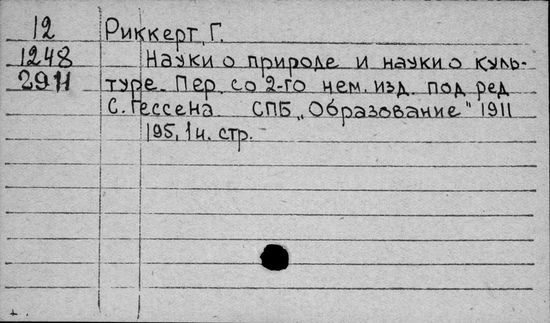 12 Риккерт, Г.
1248 Науки о природе и науки о куль-
2911 туре. Пер. со 2-го нем. изд. под ред
С. Гессена СПБ „Образование" 1911
195, 1 н. стр.